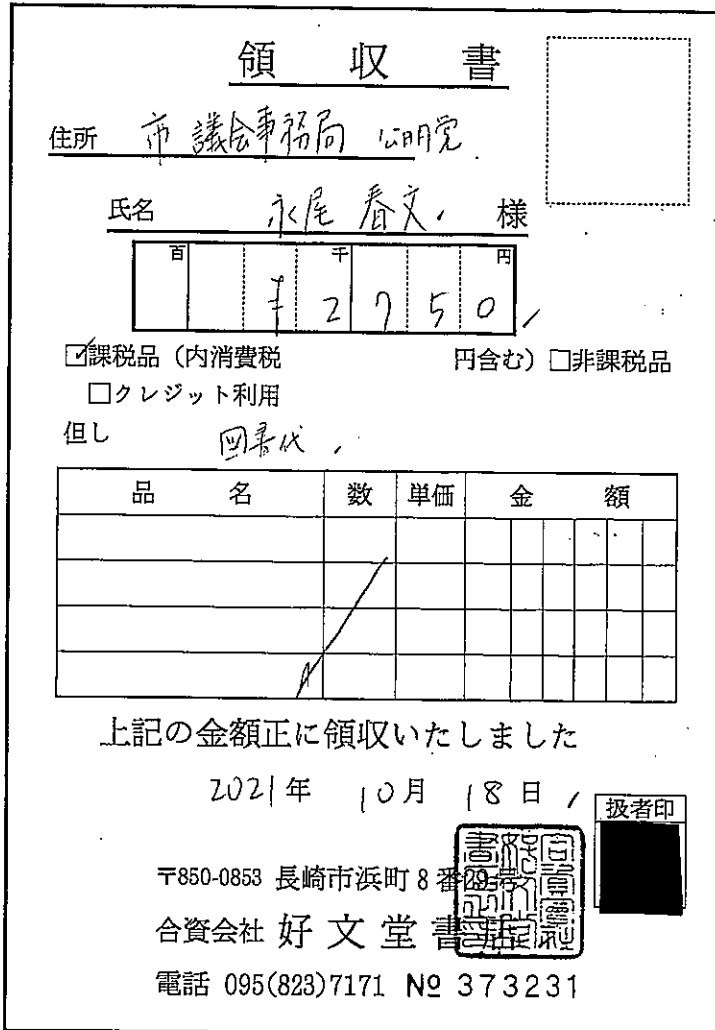 領収書
住所 市議会事務局 公明党
氏名 永尾 春文 様
百 千 円
¥2750
☑課税品（内消費税 円含む）□非課税品
□クレジット利用
但し 図書代
品名 数 単価 金額
上記の金額正に領収いたしました
2021年 10月 18日
扱者印
〒850-0853 長崎市浜町8番29号
合資会社 好文堂書店
電話 095(823)7171 № 373231